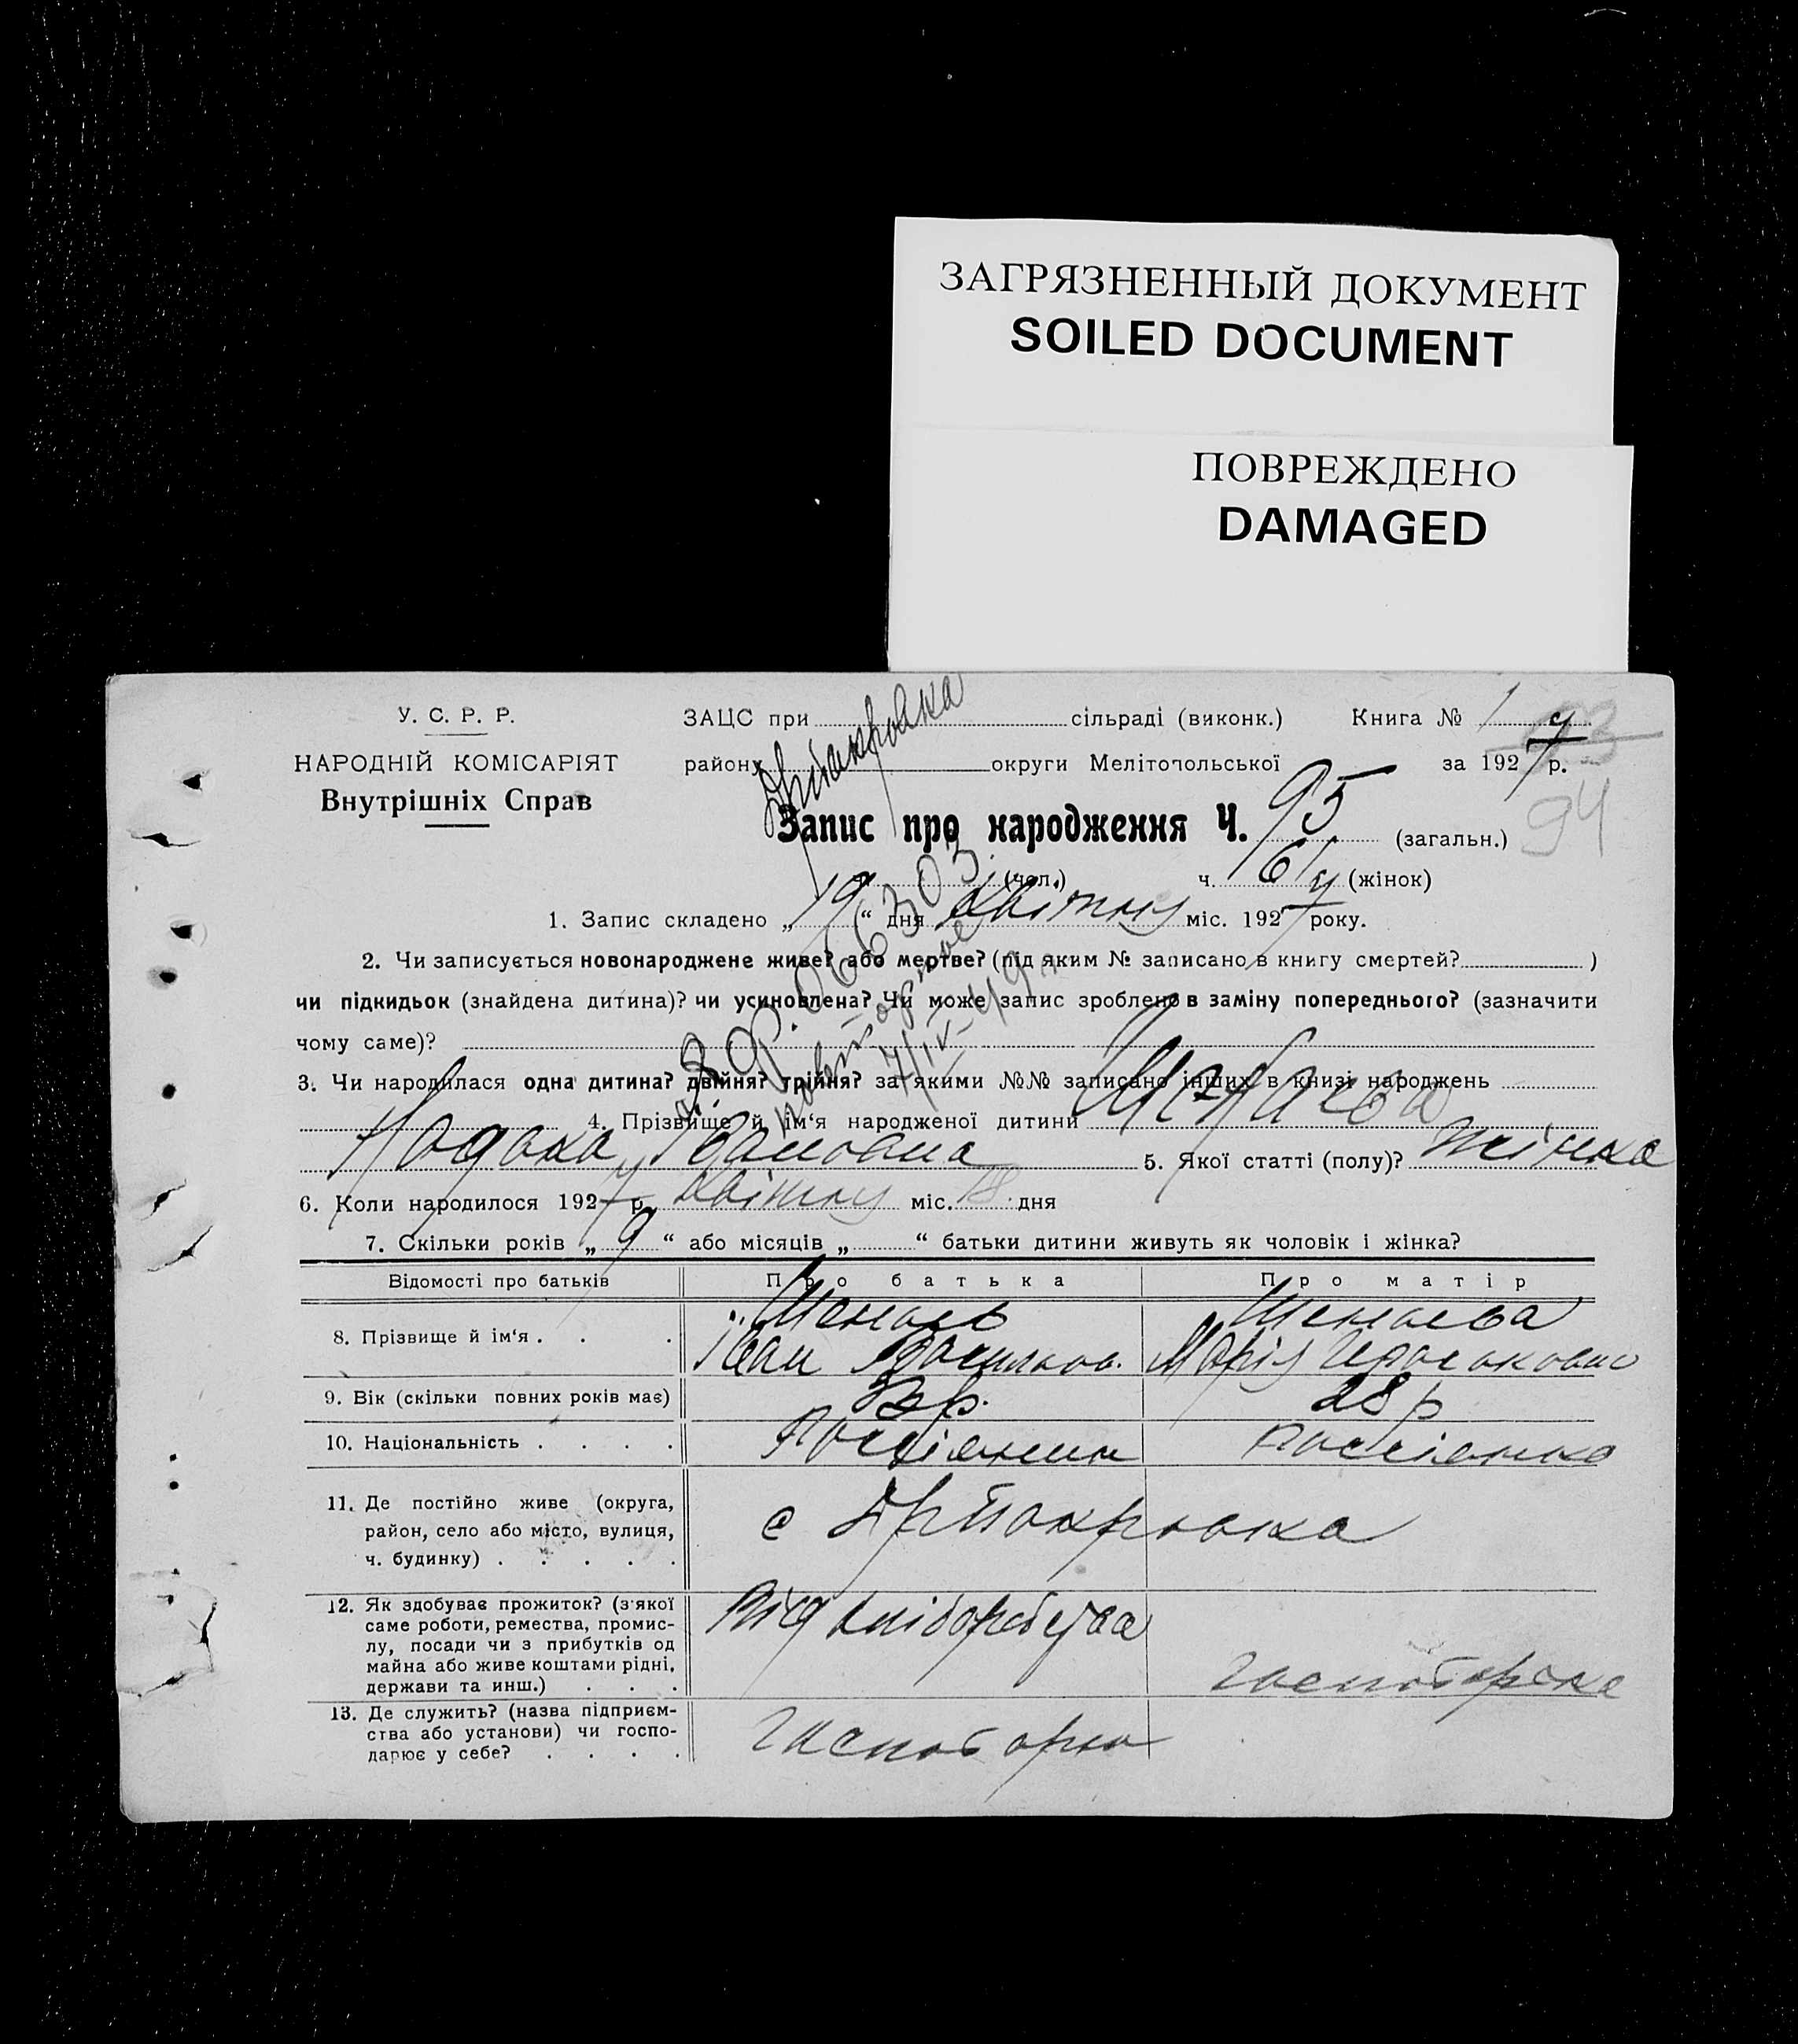 ЗАГРЯЗНЕННЫЙ ДОКУМЕНТ
SOILED DOCUMENT
ПОВРЕЖДЕНО
DAMAGED
У. С. Р. Р.
НАРОДНІЙ КОМІСАРІЯТ
Внутрішніх Справ
ЗАЦС при сільраді (виконк.) Книга № 1
району округи Мелітопольської за 1927 р.
Запис про народження Ч. 95 (загальн.)
94
(чол.) ч. 61 (жінок)
1. Запис складено „ 19 “ дня Квітня міс. 1927 року.
2. Чи записується новонароджене живе? або мертве? (під яким № записано в книгу смертей? )
чи підкидьок (знайдена дитина)? чи усиновлена? Чи може запис зроблено в заміну попереднього? (зазначити
чому саме)?
3. Чи народилася одна дитина? двійня? трійня? за якими №№ записано інших в книзі народжень
4. Прізвище й ім‘я народженої дитини
Івановна 5. Якої статті (полу)? Жінка
6. Коли народилося 1927 р. Квітня міс. 18 дня
7. Скільки років „ 9 “ або місяців „ “ батьки дитини живуть як чоловік і жінка?
Відомості про батьків Про батька Про матір
8. Прізвище й ім‘я . . .
Іван Марія
9. Вік (скільки повних років має) 28 р
10. Національність . . . .
11. Де постійно живе (округа,
район, село або місто, вулиця,
ч. будинку) . . . . .
12. Як здобуває прожиток? (з‘якої
саме роботи, ремества, промис-
лу, посади чи з прибутків од
майна або живе коштами рідні,
держави та инш.) . . .
Від
13. Де служить? (назва підприєм-
ства або установи) чи госпо-
дарює у себе? . . . .